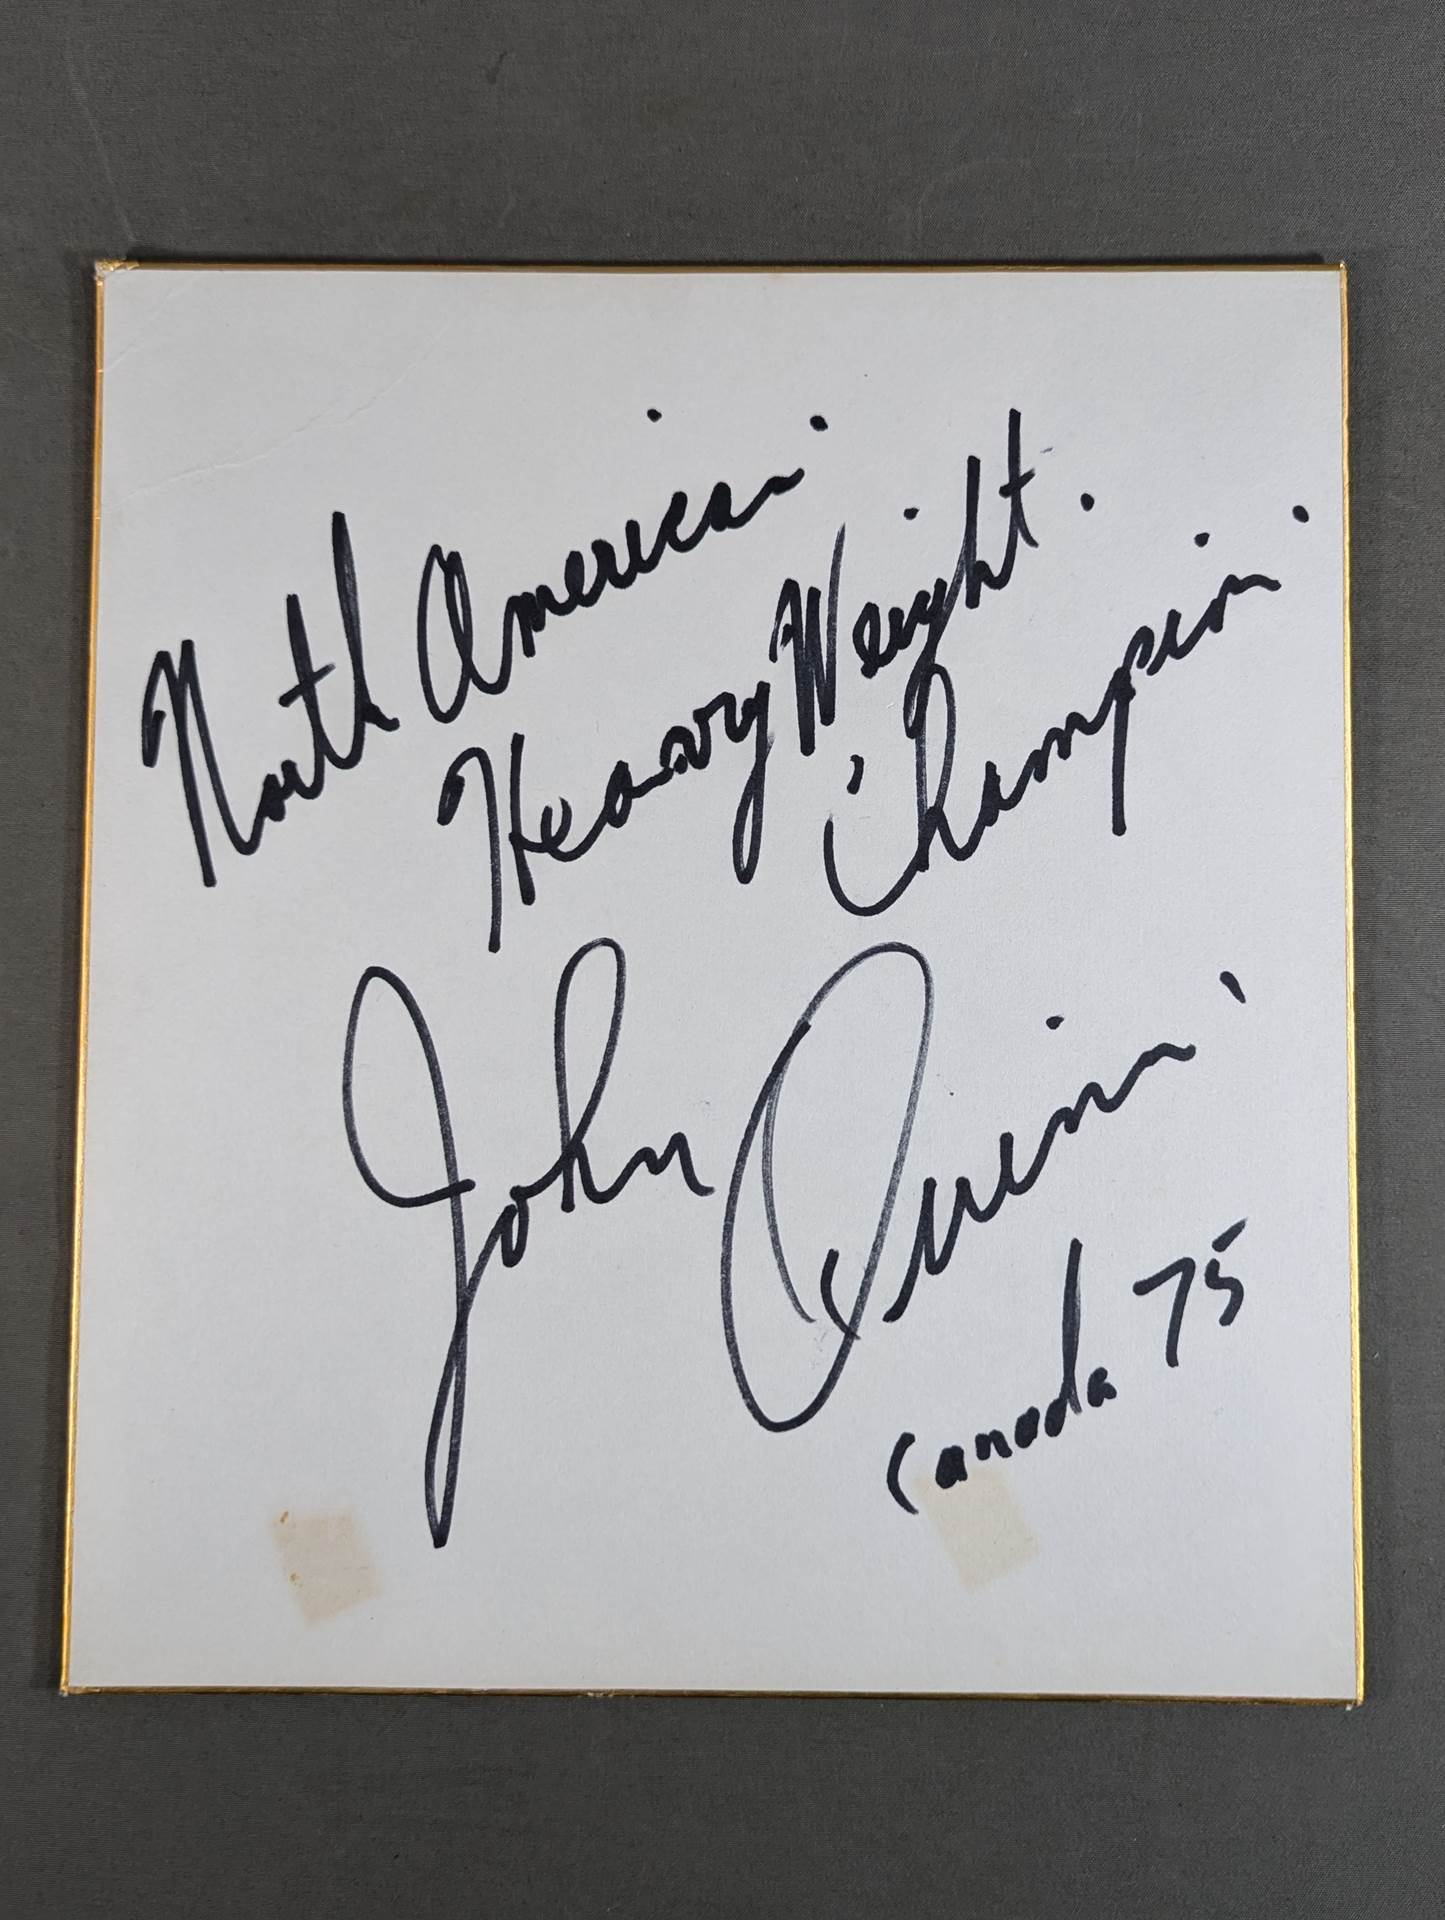 North American.
Heavy Weight.
Champion.
John Quinn
Canada 75